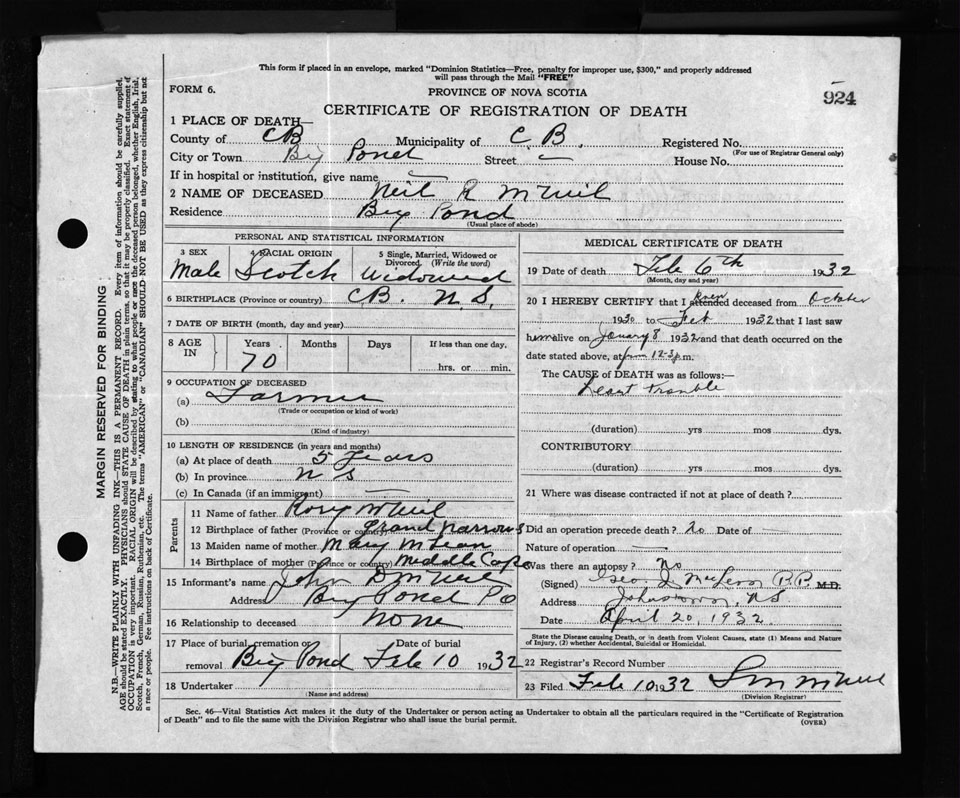 This form if placed in an envelope, marked "Dominion Statistics—Free, penalty for improper use, $300," and properly addressed
will pass through the Mail "FREE"
FORM 6.
PROVINCE OF NOVA SCOTIA
924
CERTIFICATE OF REGISTRATION OF DEATH
1 PLACE OF DEATH—
County of CB Municipality of C B. Registered No.
(For use of Registrar General only)
City or Town Big Pond Street — House No.
If in hospital or institution, give name —
2 NAME OF DECEASED Neil R McNeil
Residence Big Pond
(Usual place of abode)
PERSONAL AND STATISTICAL INFORMATION
3 SEX 4 RACIAL ORIGIN 5 Single, Married, Widowed or Divorced. (Write the word)
Male Scotch Widowed
6 BIRTHPLACE (Province or country) CB. N S.
7 DATE OF BIRTH (month, day and year)
8 AGE IN Years Months Days If less than one day.
70 hrs. or min.
9 OCCUPATION OF DECEASED
(a) Farmer
(Trade or occupation or kind of work)
(b)
(Kind of industry)
10 LENGTH OF RESIDENCE (in years and months)
(a) At place of death 5 Years
(b) In province N S
(c) In Canada (if an immigrant) —
Parents
11 Name of father Rory McNeil
12 Birthplace of father (Province or country) Grand Narrows
13 Maiden name of mother Mary McLean
14 Birthplace of mother (Province or country) Middle Cape
15 Informant's name John D McNeil
Address Big Pond PO
16 Relationship to deceased None
17 Place of burial, cremation or removal Date of burial
Big Pond Feb 10 1932
18 Undertaker
(Name and address)
MEDICAL CERTIFICATE OF DEATH
19 Date of death Feb 6th 1932
(Month, day and year)
20 I HEREBY CERTIFY that I attended deceased from October
1930 to Feb 1932 that I last saw
him alive on January 8 1932 and that death occurred on the
date stated above, at 12-3 p.m.
The CAUSE OF DEATH was as follows:—
Heart Trouble
(duration) yrs mos dys.
CONTRIBUTORY
(duration) yrs. mos. dys.
21 Where was disease contracted if not at place of death?
Did an operation precede death? no Date of —
Nature of operation —
Was there an autopsy? No
(Signed) Geo J P.P. M.D.
Address Johnstown, N S
Date April 20, 1932.
State the Disease causing Death, or in death from Violent Causes, state (1) Means and Nature
of Injury, (2) whether Accidental, Suicidal or Homicidal.
22 Registrar's Record Number
23 Filed Feb 10 1932 McNeil
(Division Registrar)
Sec. 46—Vital Statistics Act makes it the duty of the Undertaker or person acting as Undertaker to obtain all the particulars required in the "Certificate of Registration
of Death" and to file the same with the Division Registrar who shall issue the burial permit.
(OVER)
MARGIN RESERVED FOR BINDING
N.B.—WRITE PLAINLY WITH UNFADING INK—THIS IS A PERMANENT RECORD. Every item of information should be carefully supplied.
AGE should be stated EXACTLY. PHYSICIANS should STATE CAUSE OF DEATH in plain terms, so that it may be properly classified. Exact statement of
OCCUPATION is very important. RACIAL ORIGIN will be described by stating to what people or race the deceased person belonged, whether English, Irish,
Scotch, French, German, Russian, Ruthenian, etc. The terms "AMERICAN" or "CANADIAN" SHOULD NOT BE USED as they express citizenship but not
a race or people. Fee instructions on back of Certificate.